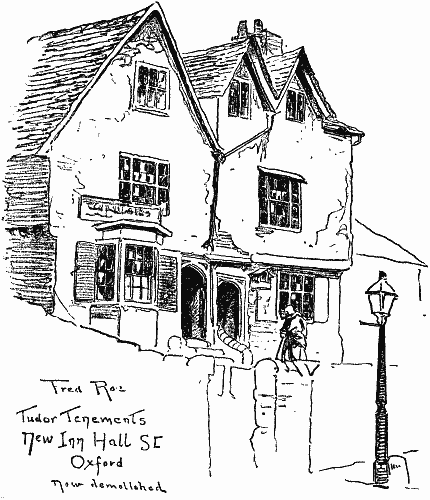 Fred Roe
Tudor Tenements
New Inn Hall St
Oxford
Now demolished